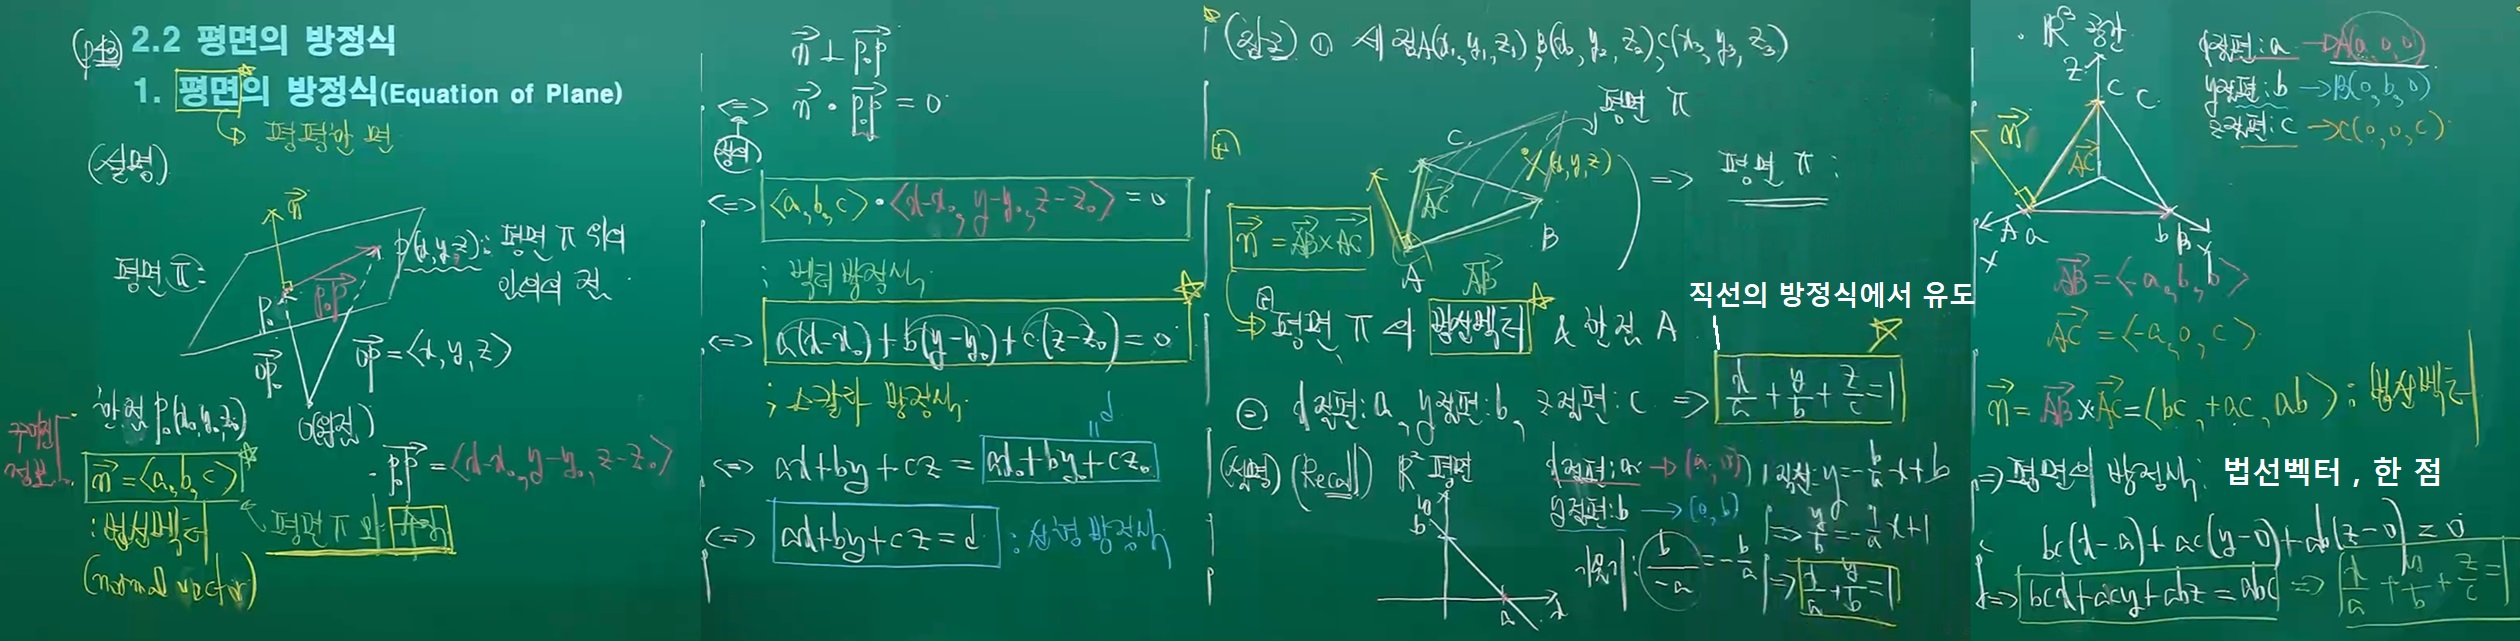 (p43) 2.2 평면의 방정식
1. 평면의 방정식(Equation of Plane)
평평한 면
(설명)
n⃗
평면 π:
P₀
P₀P⃗
P(x, y, z): 평면 π 위의
임의의 점
OP₀⃗
OP⃗ = <x, y, z>
O(원점)
주어진
정보
한 점 P₀(x₀, y₀, z₀)
n⃗ = <a, b, c>
: 법선벡터
(normal vector)
평면 π의
P₀P⃗ = <x-x₀, y-y₀, z-z₀>
n⃗ ⊥ P₀P⃗
<=> n⃗ • P₀P⃗ = 0
<=> <a, b, c> • <x-x₀, y-y₀, z-z₀> = 0
; 벡터방정식
<=> a(x-x₀)+b(y-y₀)+c(z-z₀)=0
; 스칼라 방정식
<=> ax+by+cz = ax₀+by₀+cz₀
= d
<=> ax+by+cz=d : 선형방정식
(참고) ① 세 점 A(x₁, y₁, z₁), B(x₂, y₂, z₂), C(x₃, y₃, z₃)
평면 π
C
X(x, y, z)
AC⃗
B
A
AB⃗
n⃗ = AB⃗×AC⃗
=> 평면 π :
평면 π의 법선벡터 & 한 점 A
직선의 방정식에서 유도
② x절편: a, y절편: b, z절편: c => x/a + y/b + z/c = 1
(설명) (Recall) R² 평면
y
b
a
x
x절편: a → (a, 0)
y절편: b → (0, b)
기울기: b/-a = -b/a
직선: y = -b/a x + b
=> y/b = -1/a x + 1
=> x/a + y/b = 1
R³ 공간
x절편: a → A(a, 0, 0)
y절편: b → B(0, b, 0)
z절편: c → C(0, 0, c)
Z
c C
n⃗
AC⃗
A a
b B
X
Y
AB⃗ = <-a, b, 0>
AC⃗ = <-a, 0, c>
n⃗ = AB⃗×AC⃗ = <bc, +ac, ab> : 법선벡터
=> 평면의 방정식: 법선벡터 , 한 점
bc(x-a)+ac(y-0)+ab(z-0)=0
<=> bcx+acy+abz=abc => x/a + y/b + z/c = 1